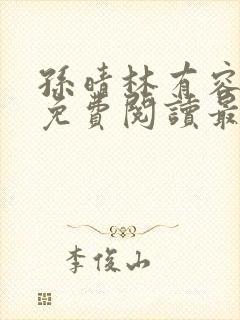 孫晴林有容
免費閱讀最
李俊山